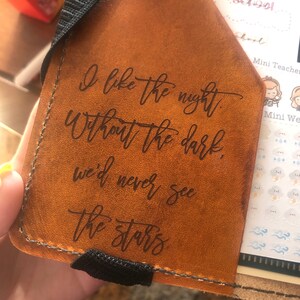 I like the night.
Without the dark,
we'd never see
the stars
Mini Teache
Mini We